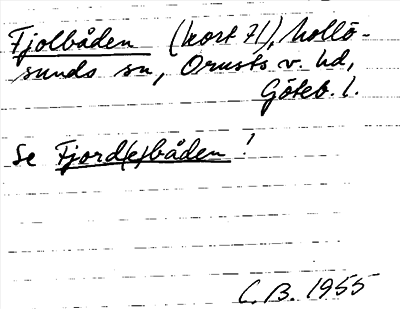 Fjolbåden (kort 71), Mollö-
sunds sn, Orusts v. hd,
Göteb. l.
Se Fjord(e)båden!
C.B. 1955